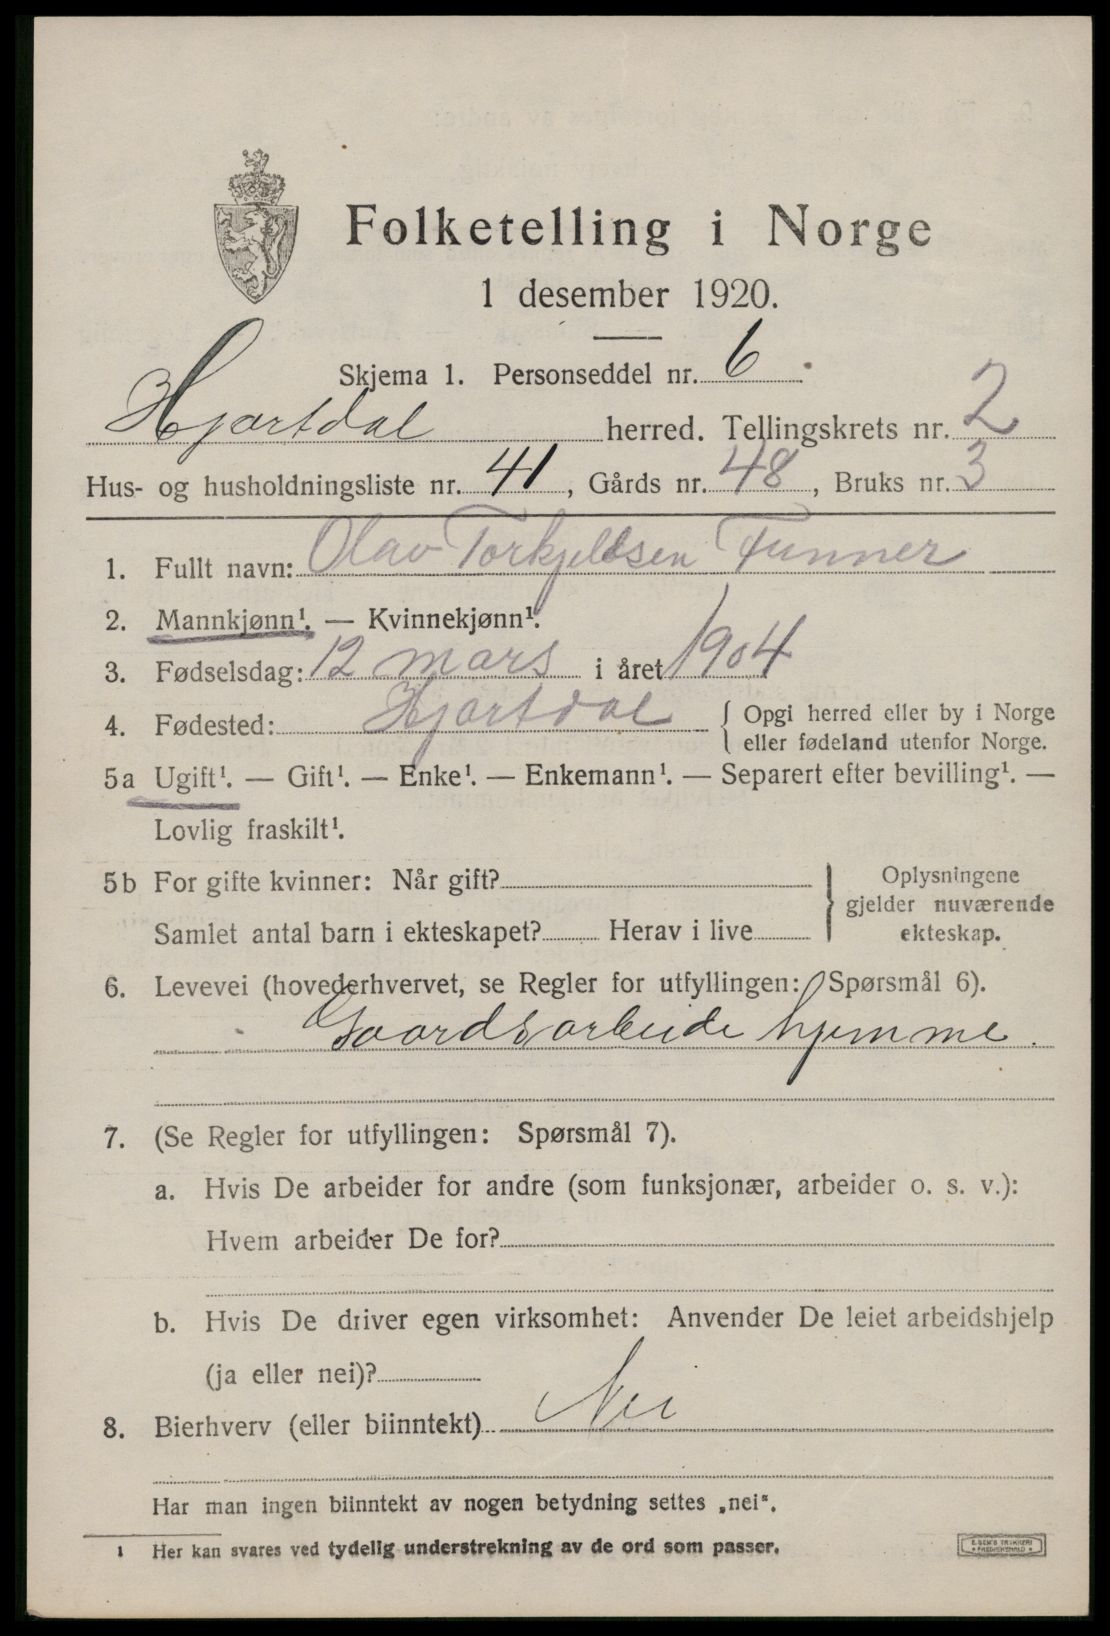 Folketelling i Norge
1 desember 1920.
Skjema 1. Personseddel nr. 6
Hjartdal herred. Tellingskrets nr. 2
Hus- og husholdningsliste nr. 41, Gårds nr. 48, Bruks nr. 3
1. Fullt navn: Olav Torkjellsen Funner
2. Mannkjønn¹. — Kvinnekjønn¹.
3. Fødselsdag: 12 mars i året 1904
4. Fødested: Hjartdal { Opgi herred eller by i Norge
eller fødeland utenfor Norge.
5a Ugift¹. — Gift¹. — Enke¹. — Enkemann¹. — Separert efter bevilling¹. —
Lovlig fraskilt¹.
5b For gifte kvinner: Når gift? } Oplysningene
gjelder nuværende
Samlet antal barn i ekteskapet? Herav i live ekteskap.
6. Levevei (hovederhvervet, se Regler for utfyllingen: Spørsmål 6).
Gaardsarbeide hjemme.
7. (Se Regler for utfyllingen: Spørsmål 7).
a. Hvis De arbeider for andre (som funksjonær, arbeider o. s. v.):
Hvem arbeider De for?
b. Hvis De driver egen virksomhet: Anvender De leiet arbeidshjelp
(ja eller nei)?
8. Bierhverv (eller biinntekt) Nei
Har man ingen biinntekt av nogen betydning settes „nei“.
¹ Her kan svares ved tydelig understrekning av de ord som passer.